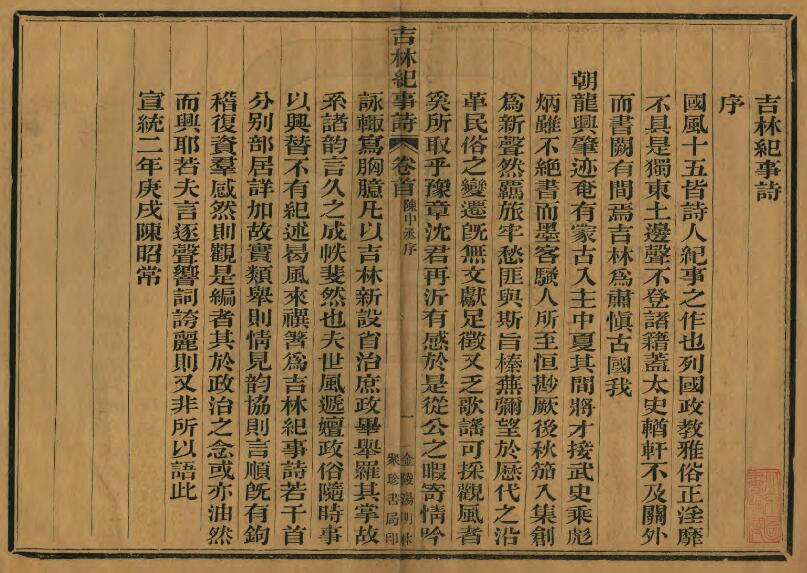 吉林紀事詩
序
國風十五皆詩人紀事之作也列國政教雅俗正淫靡
不具是獨東土邊聲不登諸籍蓋太史輶軒不及關外
而書闕有間焉吉林爲肅愼古國我
朝龍興肇迹奄有蒙古入主中夏其間將才接武史乘彪
炳雖不絕書而墨客騷人所至恒尠厥後秋笳入集創
爲新聲然羈旅牢愁匪與斯旨榛蕪彌望於歷代之沿
革民俗之變遷旣無文獻足徵又乏歌謠可採觀風者
奚所取乎豫章沈君再沂有感於是從公之暇寄情吟
吉林紀事詩 卷首 陳中丞序 一 金陵湯明林聚珍書局印
詠輙寫胸臆凡以吉林新設首治庶政畢舉羅其掌故
系諸韵言久之成帙斐然也夫世風遞嬗政俗隨時事
以興替不有紀述曷風來禩箸爲吉林紀事詩若干首
分别部居詳加故實類舉則情見韵協則言順旣有鉤
稽復資羣感然則觀是編者其於政治之念或亦油然
而興耶若夫言逐聲響詞誇麗則又非所以語此
宣統二年庚戌陳昭常